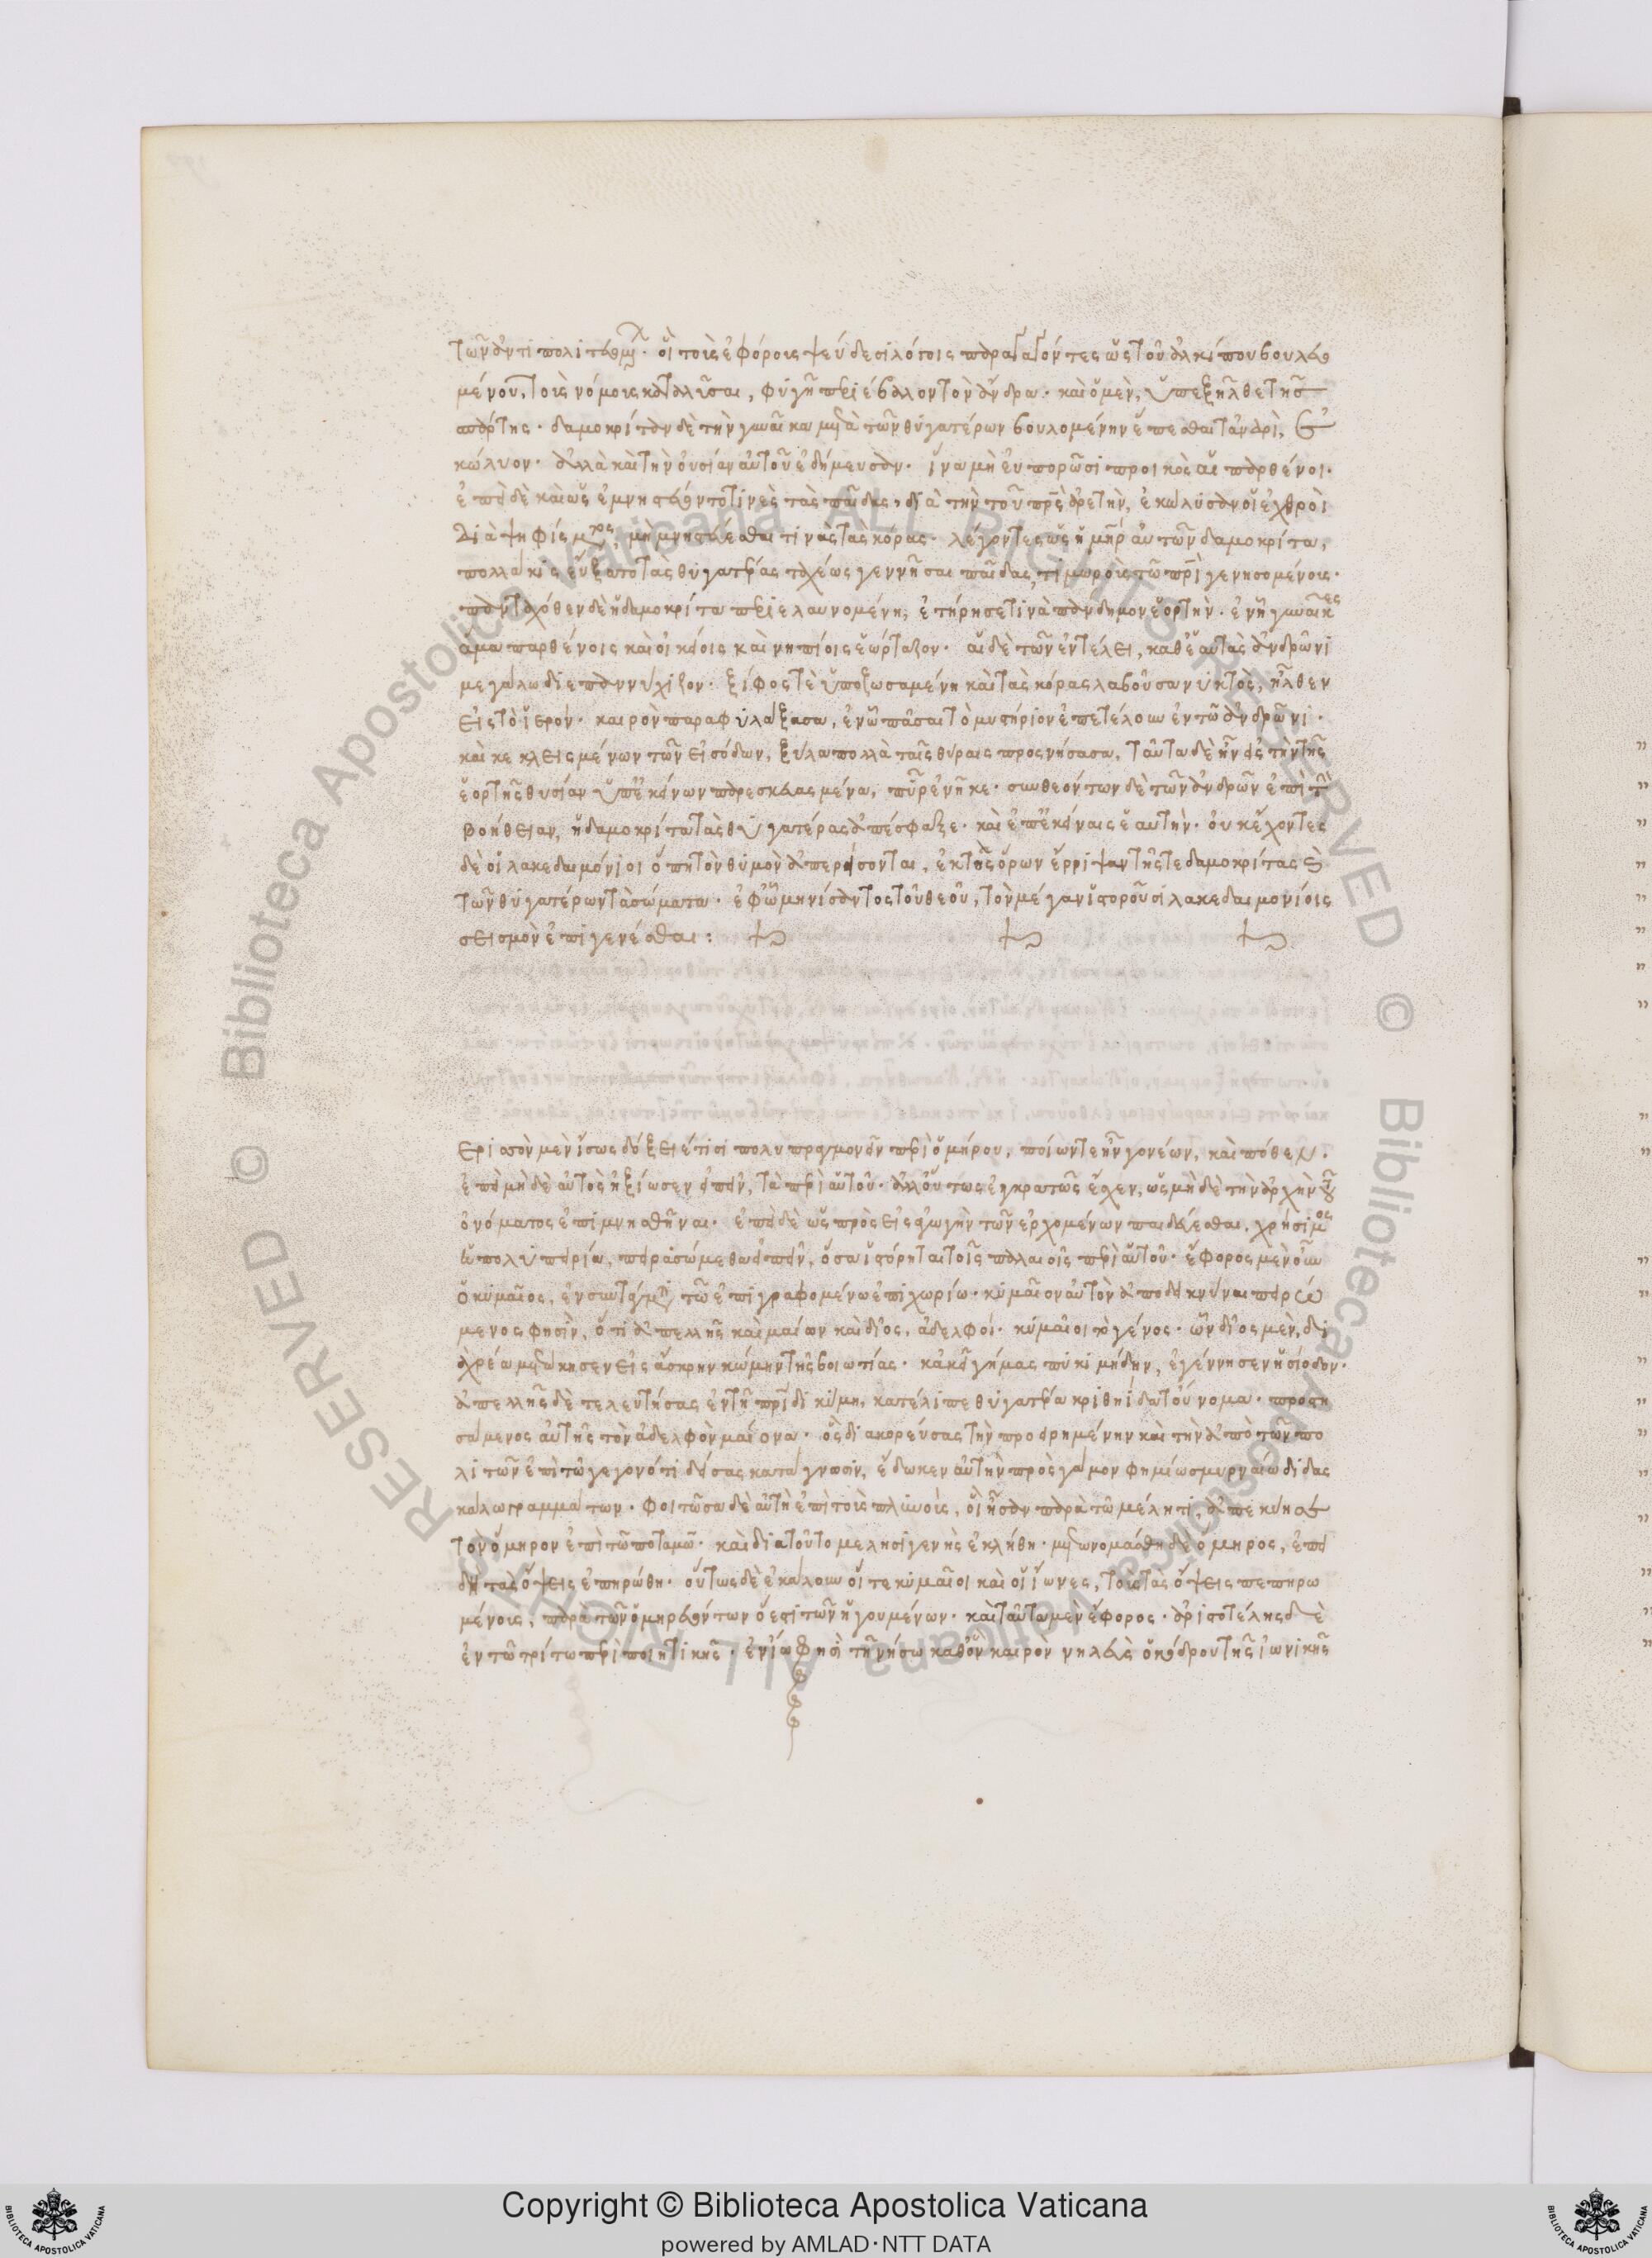 τῶν ἀντιπολιτευομένων· οἳ τοῖς ἐφόροις ψεύδεσι λόγοις παραγαγόντες ὡς τοῦ ἀλκίππου βουλευο
μένου τοῖς νόμοις καταλῦσαι, φυγῇ περιέβαλον τὸν ἄνδρα· καὶ ὁ μὲν, ὑπεξῆλθε τῆς
σπάρτης· δαμοκρίταν δὲ τὴν γυναῖκα μετὰ τῶν θυγατέρων βουλομένην ἕπεσθαι τἀνδρὶ, ἐ
κώλυον· ἀλλὰ καὶ τὴν οὐσίαν αὐτοῦ ἐδήμευσαν· ἵνα μὴ εὐπορῶσι προικὸς αἱ παρθένοι·
ἐπεὶ δὲ καὶ ὣς ἐμνηστεύοντο τινὲς τὰς παῖδας, διὰ τὴν τοῦ πρς ἀρετὴν, ἐκώλυσαν οἱ ἐχθροὶ
διὰ ψηφίσματος, μὴ μνηστεύεσθαι τινὰς τὰς κόρας· λέγοντες ὡς ἡ μηρ αὐτῶν δαμοκρίτα,
πολλάκις εὔξατο τὰς θυγατέρας ταχέως γεννῆσαι παῖδας, τιμωροὺς τῶ πρὶ γενησομένοις·
πανταχόθεν δὲ ἡ δαμοκρίτα περιελαυνομένη, ἐτήρησε τινὰ πάνδημον ἑορτὴν· ἐν ἧ γυναῖκες
ἅμα παρθένοις καὶ οἰκείοις καὶ νηπίοις ἑώρταζον· αἱ δὲ τῶν ἐν τέλει, καθ' ἑαυτὰς ἀνδρῶνι
μεγάλω διεπαννύχιζον· ξίφος τὲ ὑποζωσαμένη καὶ τὰς κόρας λαβοῦσα νυκτὸς, ἦλθεν
εἰς τὸ ἱερόν· καιρὸν παραφυλάξασα, ἐν ὧ πᾶσαι τὸ μυστήριον ἐπετέλουν ἐν τῶ ἀνδρῶνι·
καὶ κεκλεισμένων τῶν εἰσόδων, ξύλα πολλὰ ταῖς θύραις προσνήσασα, ταῦτα δὲ ἦν εἰς τὴν τῆς
ἑορτῆς θυσίαν ὑπ' ἐκείνων παρεσκευασμένα, πῦρ ἐνῆκε· συνθεόντων δὲ τῶν ἀνδρῶν ἐπὶ τὴν
βοήθειαν, ἡ δαμοκρίτα τὰς θυγατέρας ἀπέσφαξε· καὶ ἐπ' ἐκείναις ἑαυτὴν· οὐκ ἔχοντες
δὲ οἱ λακεδαιμόνιοι ὅπη τὸν θυμὸν ἀπερείσονται, ἐκτὸς ὅρων ἔρριψαν τῆς τε δαμοκρίτας καὶ
τῶν θυγατέρων τὰ σώματα· ἐφ' ὧ μηνίσαντος τοῦ θεοῦ, τὸν μέγαν ἱστοροῦσι λακεδαιμονίοις
σεισμὸν ἐπιγενέσθαι:
ερισσὸν μὲν ἴσως δόξει ἔτι σι πολυπραγμονεῖν περὶ ὁμήρου, ποίων τε ἦν γονέων, καὶ πόθεν·
ἐπεὶ μὴ δὲ αὐτὸς ἠξίωσεν εἰπεῖν, τὰ περὶ αὑτοῦ· ἀλλ' οὕτως ἐγκρατῶς ἔσχεν, ὡς μὴ δὲ τὴν ἀρχὴν τοῦ
ὀνόματος ἐπιμνησθῆναι· ἐπεὶ δὲ ὡς πρὸς εἰσαγωγὴν τῶν ἀρχομένων παιδεύεσθαι, χρήσιμος
ἡ πολυπειρία, πειρασόμεθα εἰπεῖν, ὅσα ἱστόρηται τοῖς παλαιοῖς περὶ αὐτοῦ· ἔφορος μὲν οὖν
ὁ κυμαῖος, ἐν συντάγματι τῶ ἐπιγραφομένω ἐπιχωρίω· κυμαῖον αὐτὸν ἀποδεικνύναι πειρώ
μενος φησὶν, ὅτι ἀπελλῆς καὶ μαίων καὶ δῖος, ἀδελφοί· κυμαῖοι τὸ γένος· ὧν δῖος μὲν, διὰ
χρέα μετώκησεν εἰς ἄσκρην κώμην τῆς βοιωτίας· κἀκεῖ γήμας πυκιμήδην, ἐγέννησεν ἡσίοδον·
ἀπελλῆς δὲ τελευτήσας ἐν τῆ πρίδι κύμη, κατέλιπε θυγατέρα κριθηΐδα τοὔνομα· προστη
σάμενος αὐτῆς τὸν ἀδελφὸν μαίονα· ὃς διακορεύσας τὴν προειρημένην καὶ τὴν ἀπὸ τῶν πο
λιτῶν ἐπὶ τῶ γεγονότι δείσας κατάγνωσιν, ἔδωκεν αὐτὴν πρὸς γάμον φημίω σμυρναίω διδασ
κάλω γραμμάτων· φοιτῶσα δὲ αὐτὴ ἐπὶ τοὺς πλυνοὺς, οἳ ἦσαν παρὰ τῶ μέλητι, ἀπεκύησε
τὸν ὅμηρον ἐπὶ τῶ ποταμῶ· καὶ διὰ τοῦτο μελησιγενὴς ἐκλήθη· μετωνομάσθη δὲ ὅμηρος, ἐπει
δὴ τὰς ὄψεις ἐπηρώθη· οὕτως δὲ ἐκάλουν οἵ τε κυμαῖοι καὶ οἱ ἴωνες, τοὺς τὰς ὄψεις πεπηρω
μένους, παρὰ τῶν ὁμηρευόντων ὅ ἐστι τῶν ἡγουμένων· καὶ ταῦτα μὲν ἔφορος· ἀριστοτέλης δὲ
ἐν τῶ τρίτω περὶ ποιητικῆς· ἐν ἴω φησὶ τῆ νήσω καθ' ὃν καιρὸν νηλεὺς ὁ κόδρου τῆς ἰωνικῆς
Copyright © Biblioteca Apostolica Vaticana
powered by AMLAD·NTT DATA